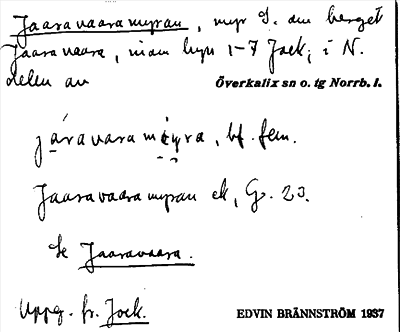 Jaaravaaramyran, myr S. om berget
Jaaravaara, inom hmn 1-7 Jock; i N.
delen av Överkalix sn o. tg Norrb. l.
járavaramyra, bf. fem.
Jaaravaaramyran ek, G. 23.
Se Jaaravaara.
Uppg. fr. Jock.
EDVIN BRÄNNSTRÖM 1937